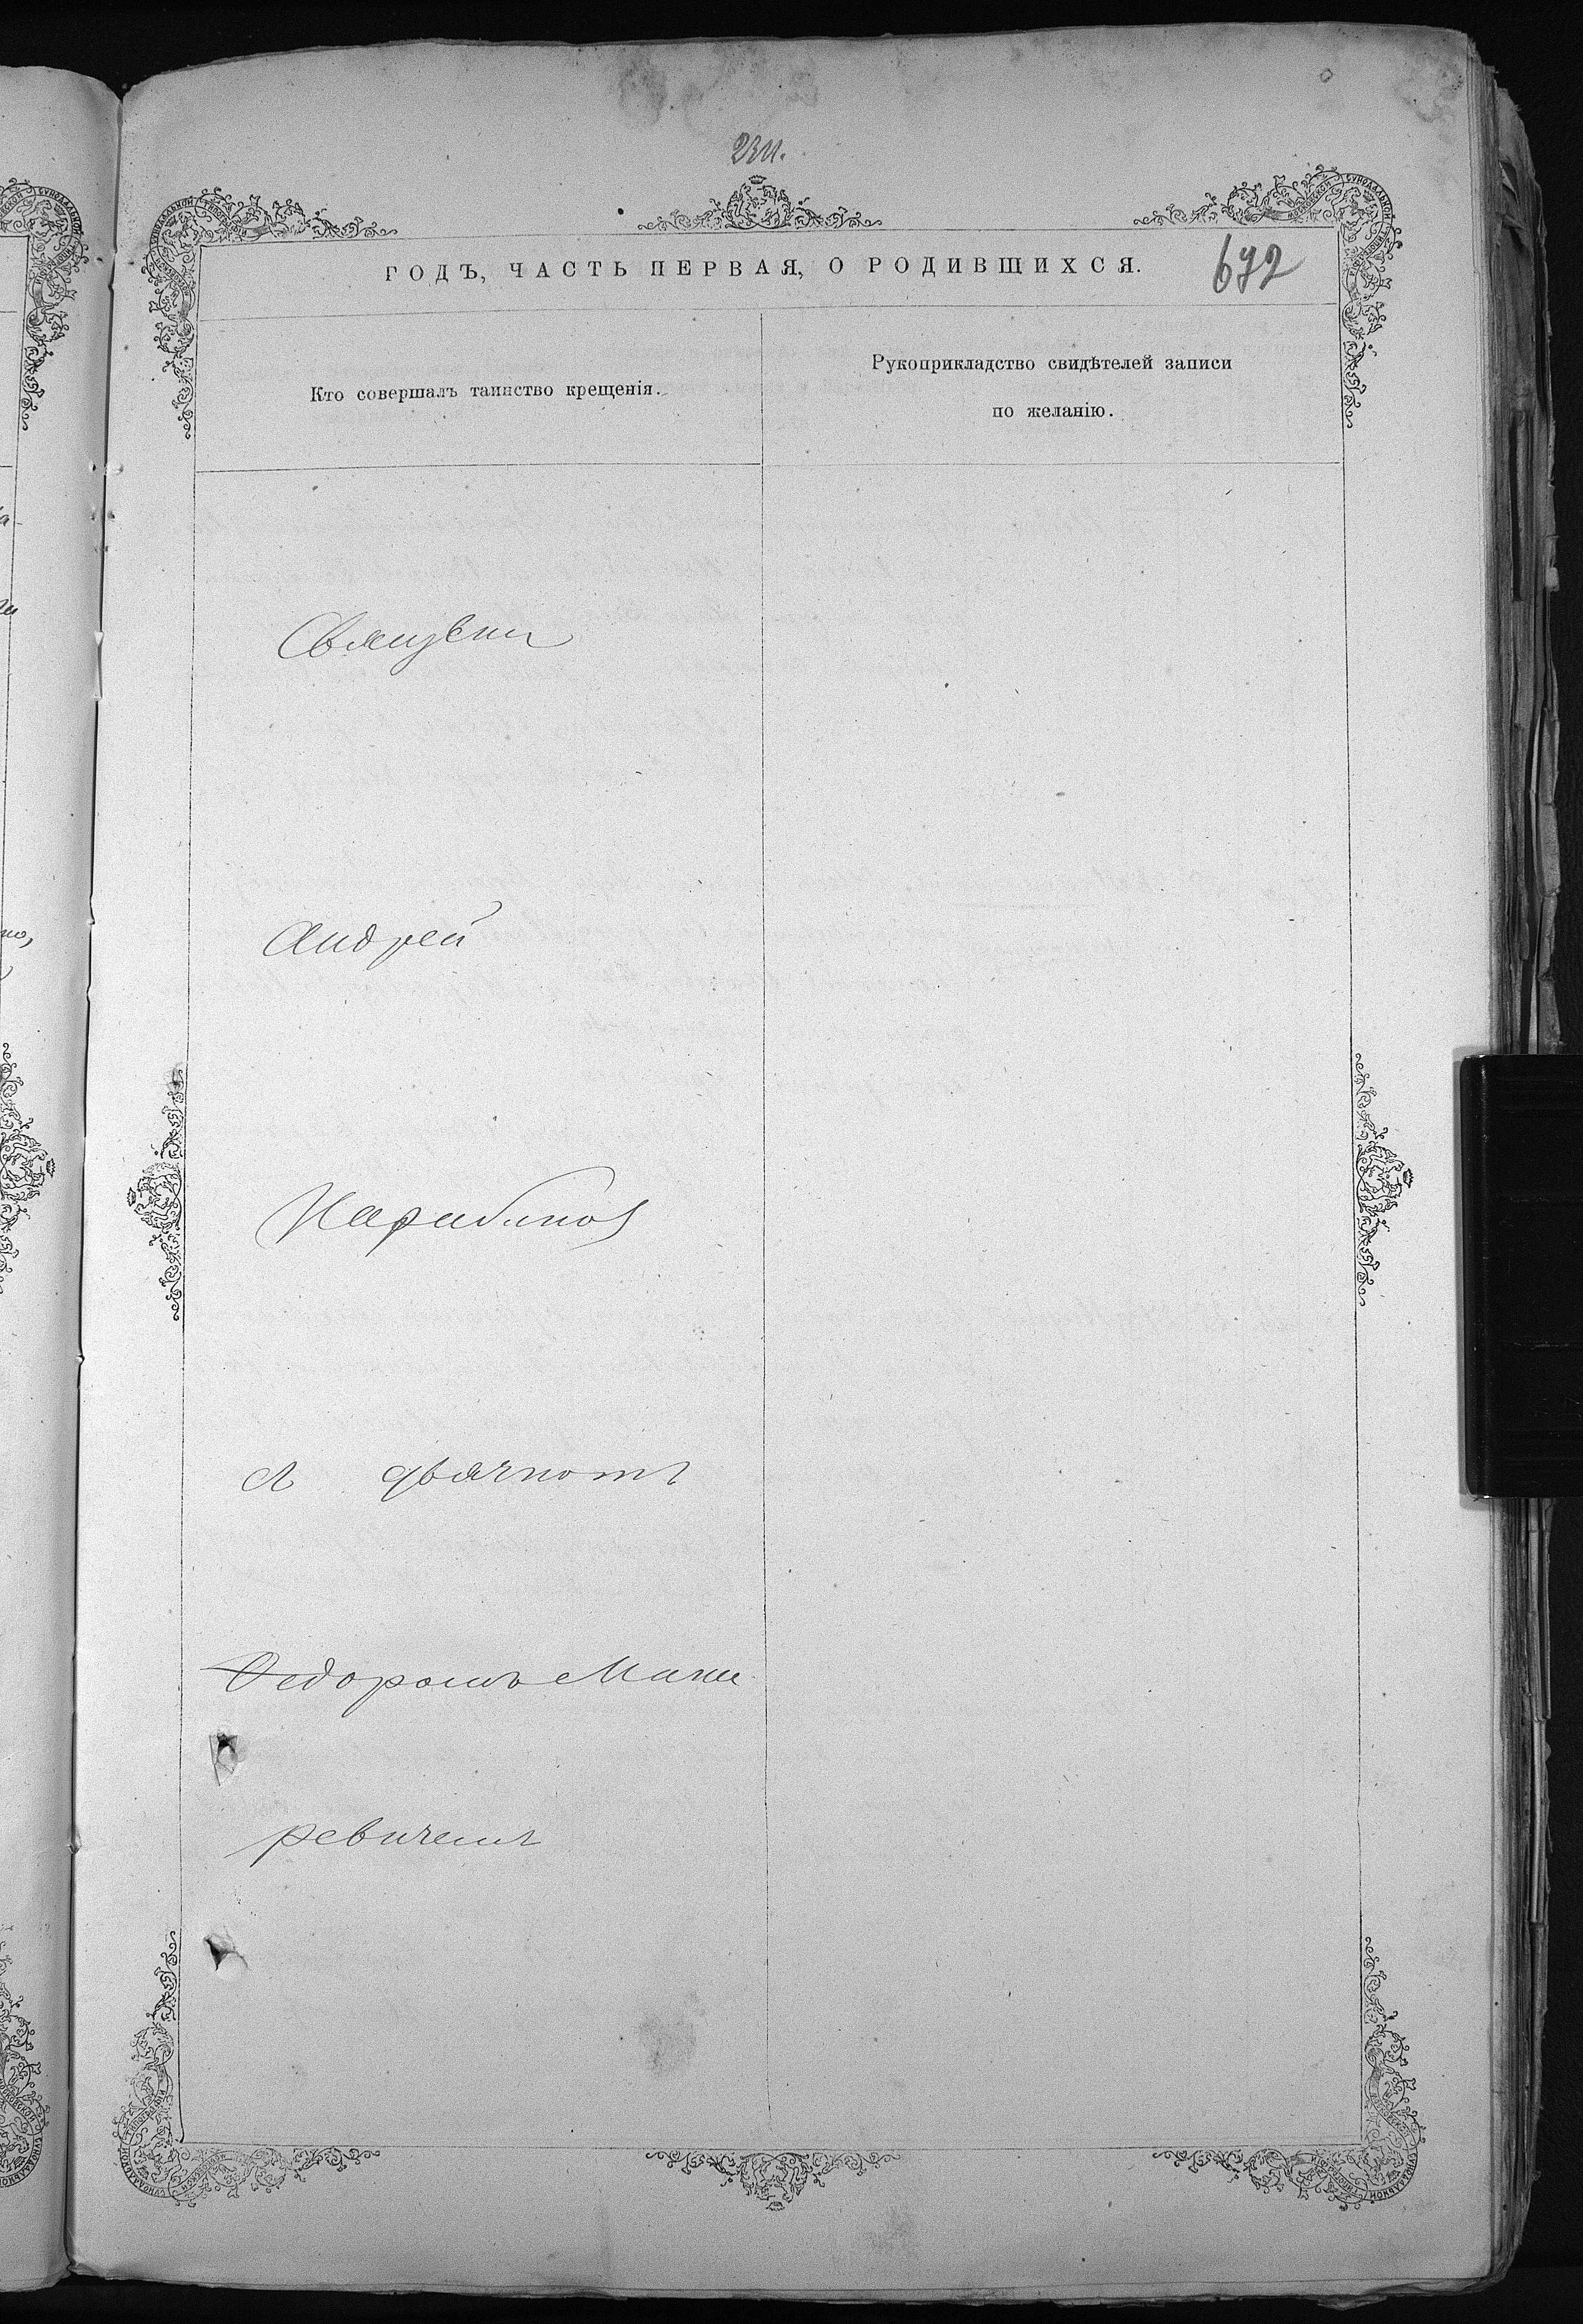 ГОДЪ, ЧАСТЬ ПЕРВАЯ, О РОДИВШИХСЯ.
672
Кто совершалъ таинство крещенія.
Рукоприкладство свидѣтелей записи
по желанію.
Свящ҃енни
Андрей
Карабинов
съ дьячкомъ
Ѳедоромъ Мака
ревичемъ